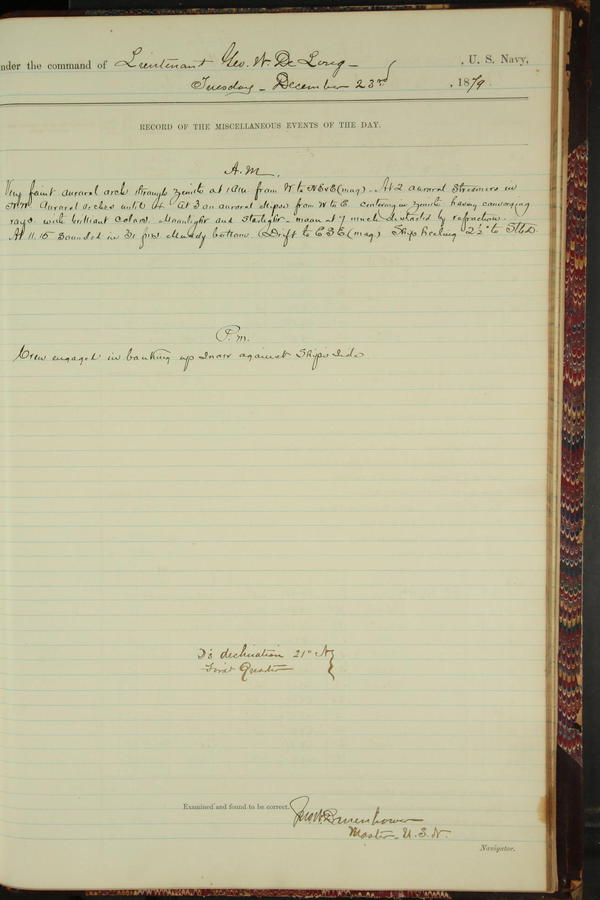 nder the command of Lieutenant Geo. W. De Long , U. S. Navy,
Tuesday - December 23rd , 1879.
RECORD OF THE MISCELLANEOUS EVENTS OF THE DAY.
A.M.
Very faint auroral arch through zenith at 1 am. from W to NExE (mag) - At 2 auroral streamers in
NW. Auroral arches until 4. At 3 an auroral from W to E. in zenith having converging
rays with brilliant colors. Moonlight and starlight - moon at 7 much distorted by refraction.
At 11.15 Sounded in 31 fms Muddy bottom. Drift to ESE (mag) Ship heeling 2½° to Stbd.
P.M.
Crew engaged in banking up snow against Ship's side
☽'s declination 21° N
First Quarter
Examined and found to be correct.
Jno W Danenhower
Master U.S.N.
Navigator.